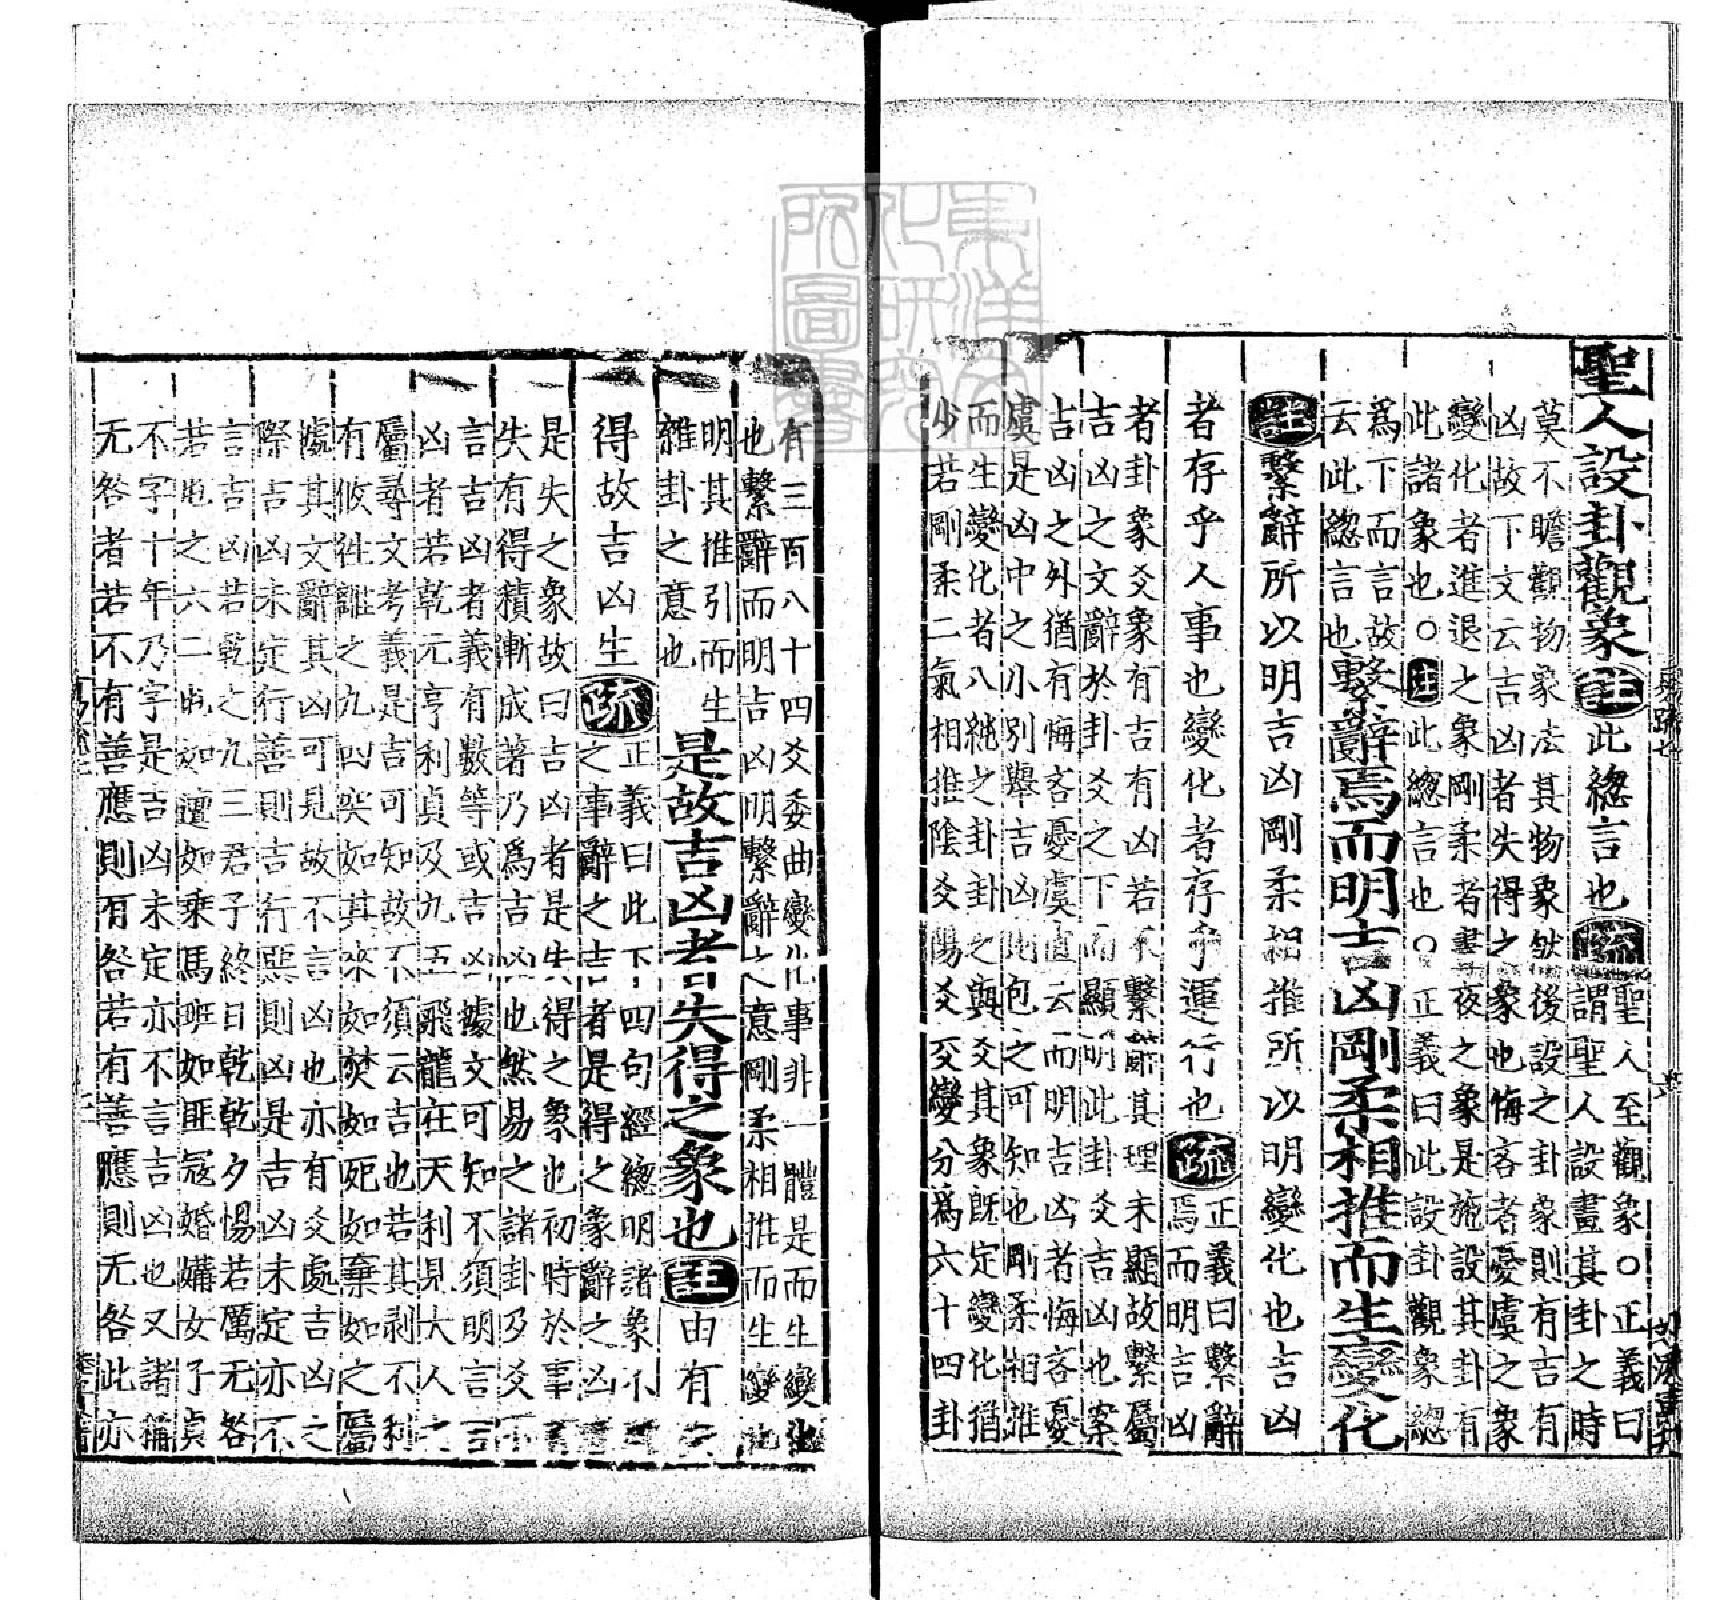 聖人設卦觀象注此總言也疏聖人至觀象○正義曰
謂聖人設畫其卦之時
莫不瞻觀物象法其物象然後設之卦象則有吉有
凶故下文云吉凶者失得之象也悔吝者憂虞之象
變化者進退之象剛柔者晝夜之象是施設其卦有
此諸象也○注此總言也○正義曰此設卦觀象總
爲下而言故
云此總言也繫辭焉而明吉凶剛柔相推而生變化
注繫辭所以明吉凶剛柔相推所以明變化也吉凶
者存乎人事也變化者存乎運行也疏正義曰繫辭
焉而明吉凶
者卦象爻象有吉有凶若不繫辭其理未顯故繫屬
吉凶之文辭於卦爻之下而顯明此卦爻吉凶也案
吉凶之外猶有悔吝憂虞直云而明吉凶者悔吝憂
虞是凶中之小別舉吉凶則包之可知也剛柔相推
而生變化者八純之卦卦之與爻其象既定變化猶
少若剛柔二氣相推陰爻陽爻交變分爲六十四卦
有三百八十四爻委曲變化事非一體是而生變化
也繫辭而明吉凶明繫辭之意剛柔相推而生變化
明其推引而生
雜卦之意也是故吉凶者失得之象也注由有失
得故吉凶生疏正義曰此下四句經總明諸象不
之事辭之吉者是得之象辭之凶
是失之象故曰吉凶者是失得之象也初時於事
失有得積漸成著乃爲吉凶也然易之諸卦及爻不
言吉凶者義有數等或吉凶據文可知不須明言
凶者若乾元亨利貞及九五飛龍在天利見大人之
屬尋文考義是吉可知故不須云吉也若其剥不利
有攸往離之九四突如其來如焚如死如棄如之屬
據其文辭其凶可見故不言凶也亦有爻處吉凶之
際吉凶未定行善則吉行惡則凶是吉凶未定亦不
言吉凶若乾之九三君子終日乾乾夕惕若厲无咎
若屯之六二屯如邅如乘馬班如匪寇婚媾女子貞
不字十年乃字是吉凶未定亦不言吉凶也又諸稱
无咎者若不有善應則有咎若有善應則无咎此亦
東洋文化研究所圖書